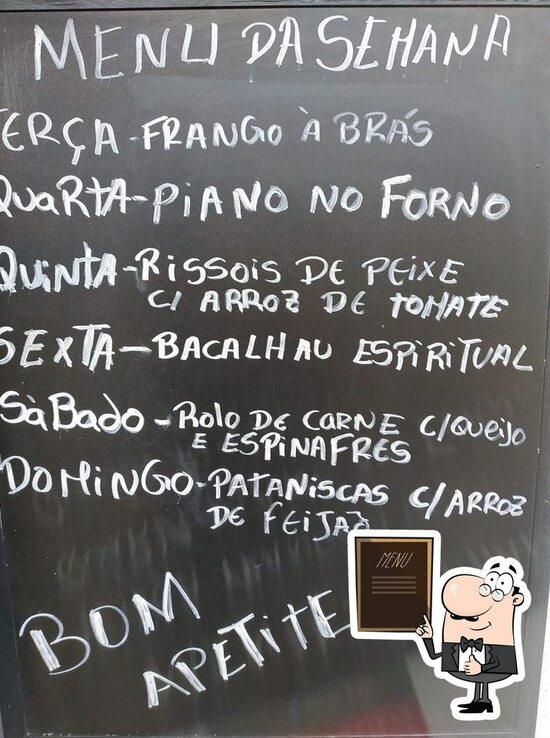 MENU DA SEMANA
TERÇA-FRANGO À BRÁS
QUARTA-PIANO NO FORNO
QUINTA-RISSOIS DE PEIXE
C/ ARROZ DE TOMATE
SEXTA-BACALHAU ESPIRITUAL
SÀBADO-ROLO DE CARNE C/QUEIJO
E ESPINAFRES
DOMINGO-PATANISCAS C/ARROZ
DE FEIJAÕ
BOM
APETITE
MENU